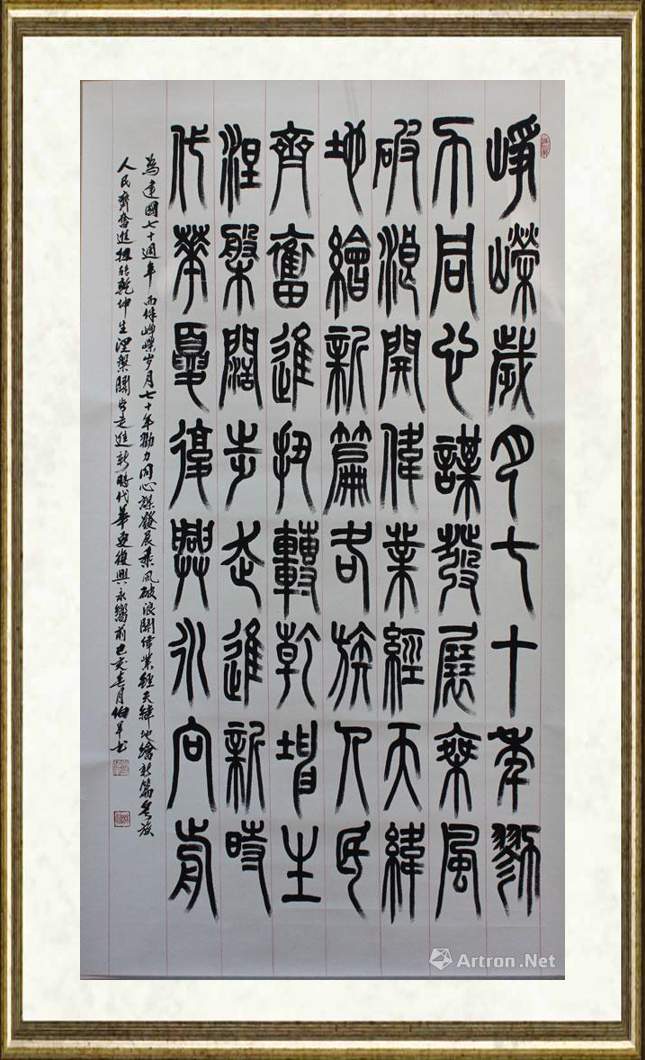 崢嶸歲月七十年勠
力同心謀發展乘風
破浪開偉業經天緯
地繪新篇各族人民
齊奮進扭轉乾坤生
涅槃闊步走進新時
代華夏復興永向前
為建國七十週年而作崢嶸岁月七十年勠力同心謀發展乘風破浪開偉業經天緯地繪新篇各族
人民齊奮進扭转乾坤生涅槃闊步走進新時代華夏復興永嚮前己亥月伯书
Artron.Net